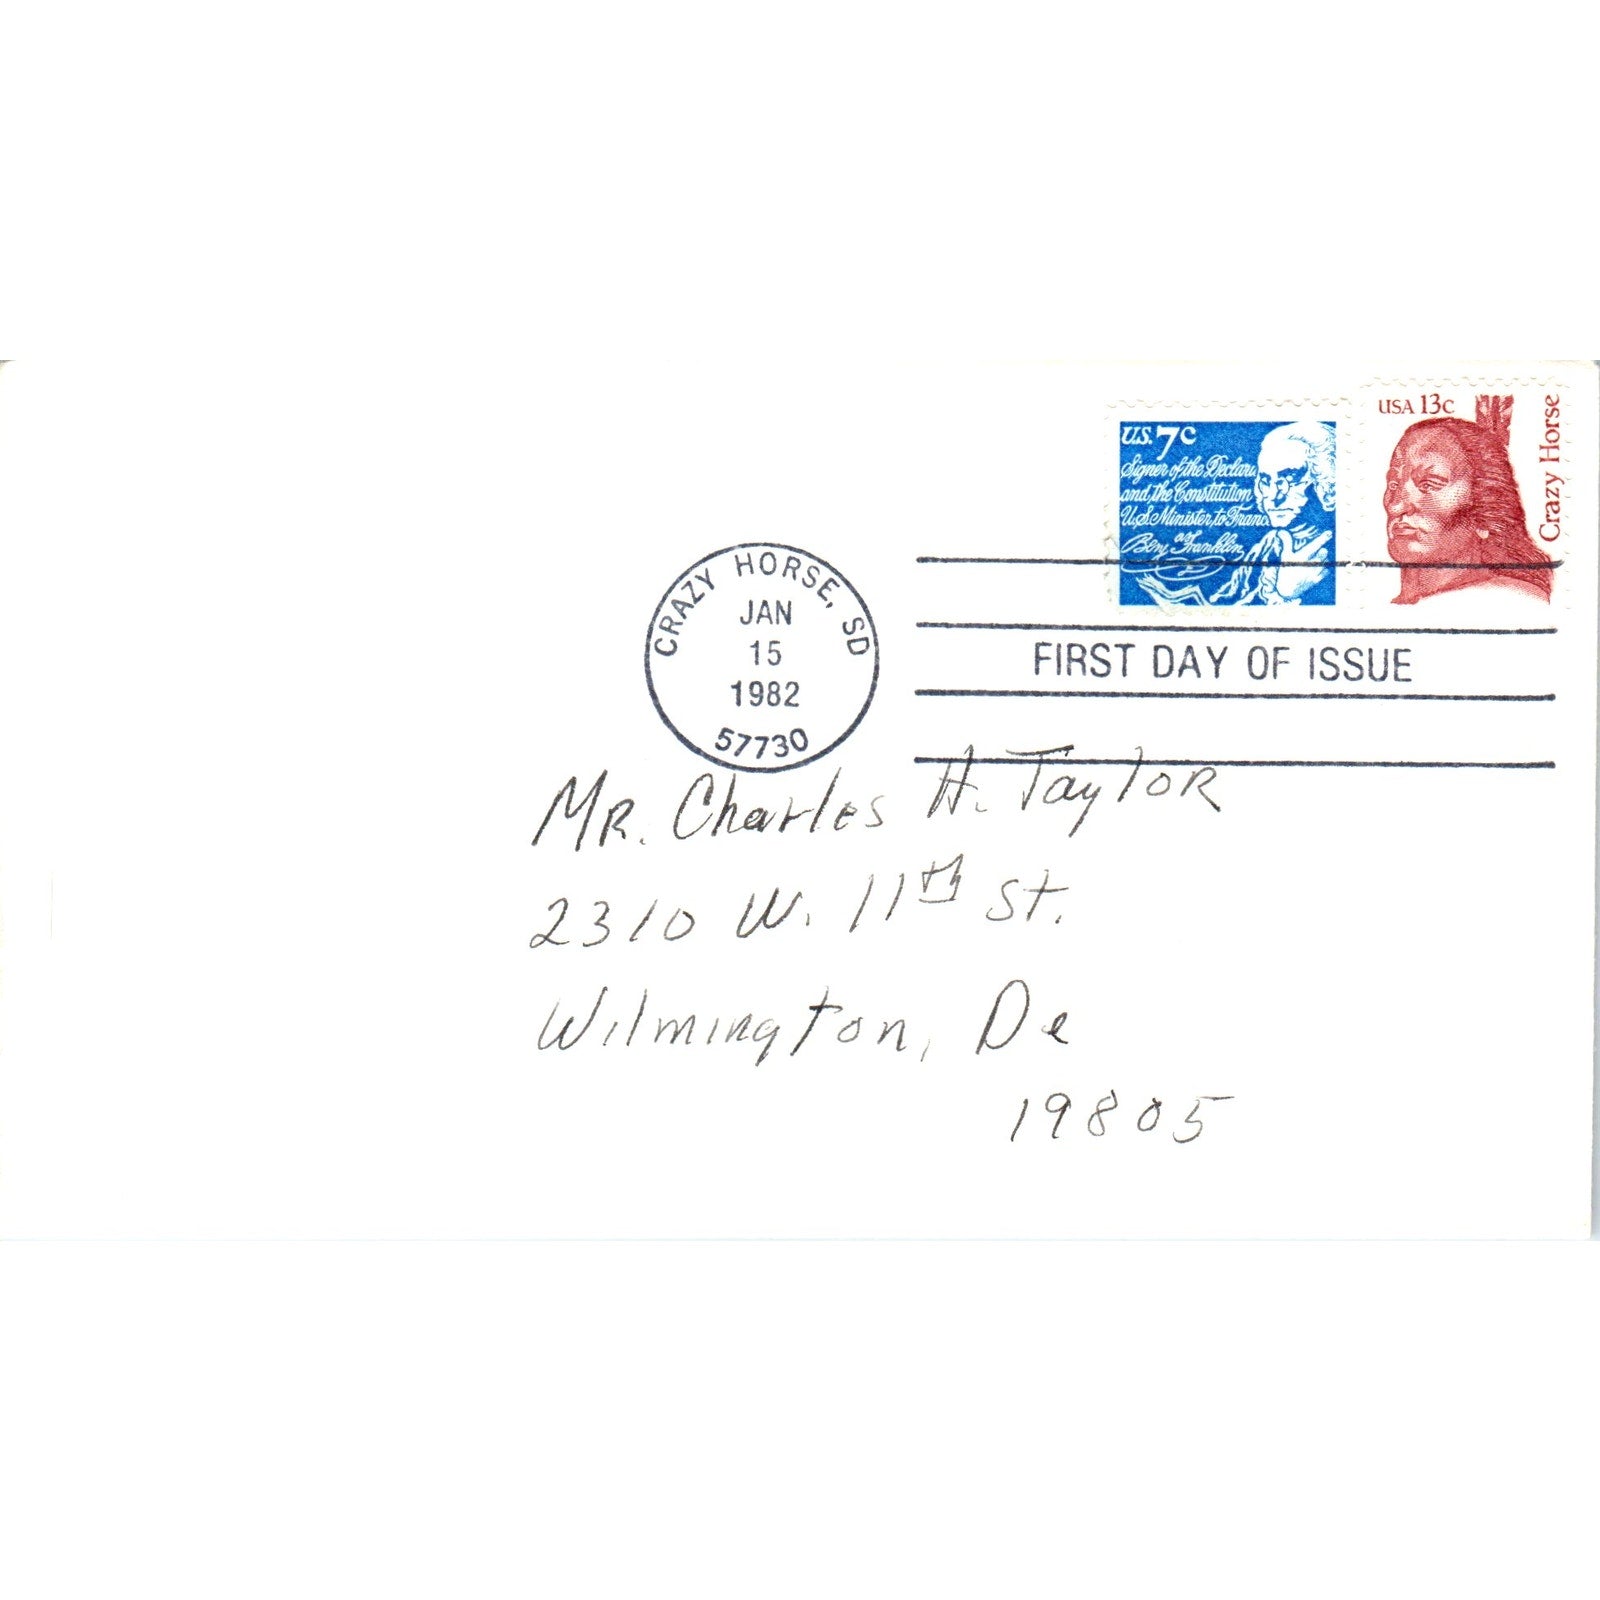 U.S. 7c
Signer of the Declara
and the Constitution
U.S. Minister to Franc
as
Benj Franklin
USA 13c
Crazy Horse
CRAZY HORSE, SD
JAN
15
1982
57730
FIRST DAY OF ISSUE
MR. Charles H. Taylor
2310 W. 11th St.
Wilmington, De
19805